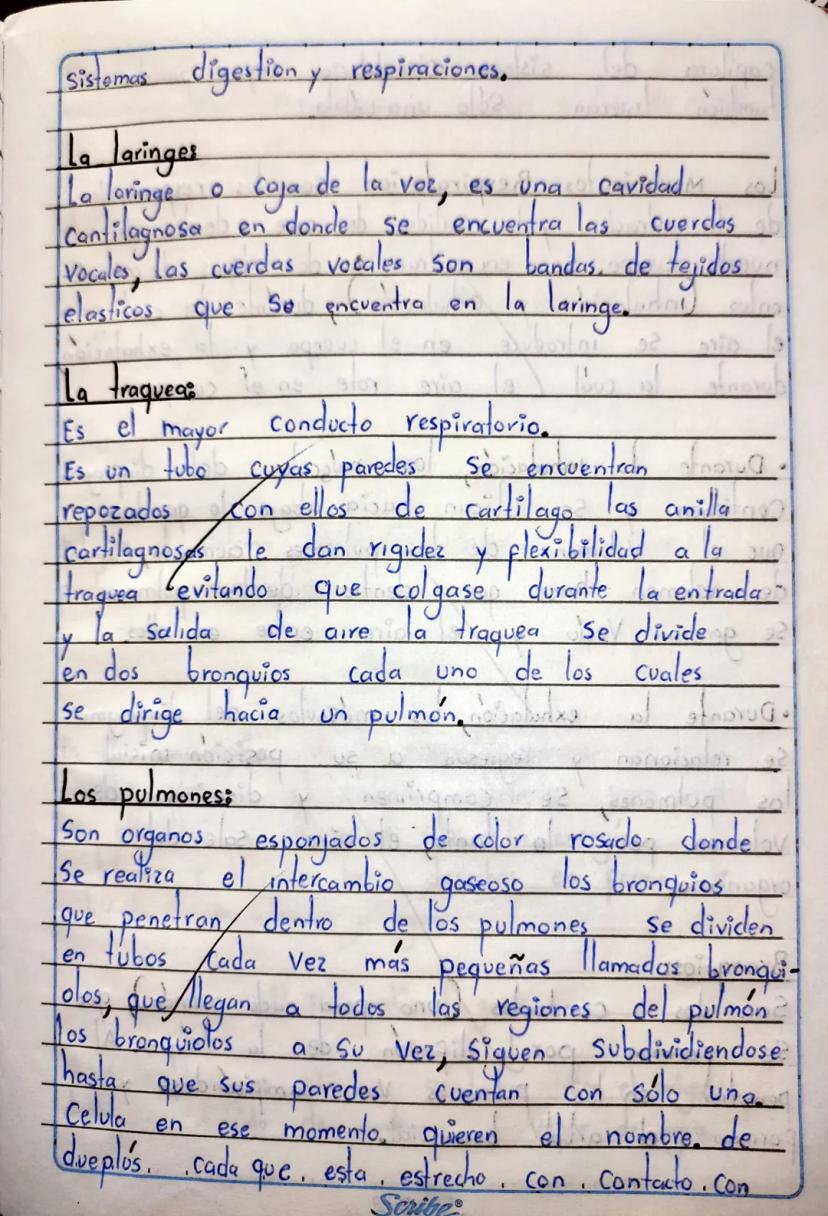 sistemas digestion y respiraciones.
La laringes
La laringe o caja de la voz, es una cavidad
cantilagnosa en donde se encuentra las cuerdas
vocales, las cuerdas vocales son bandas. de tejidos
elasticos que se encuentra en la laringe.
La traquea:
Es el mayor conducto respiratorio.
Es un tubo cuyas paredes se encuentran
repozados con ellos de cartilago las anilla
cartilagnosas le dan rigidez y flexibilidad a la
traquea evitando que colgase durante la entrada
y la salida de aire la traquea se divide
en dos bronquios cada uno de los cuales
se dirige hacia un pulmón.
Los pulmones:
Son organos esponjados de color rosado donde
se realiza el intercambio gaseoso los bronquios
que penetran dentro de los pulmones se dividen
en tubos cada vez más pequeñas llamados bronqui-
olos, que llegan a todos las regiones del pulmón
los bronquiolos a su vez, siguen subdividiendose
hasta que sus paredes cuentan con sólo una.
Celula en ese momento. quieren el nombre. de
dueplós. cada que. esta. estrecho. con. contacto. con
Scribe®